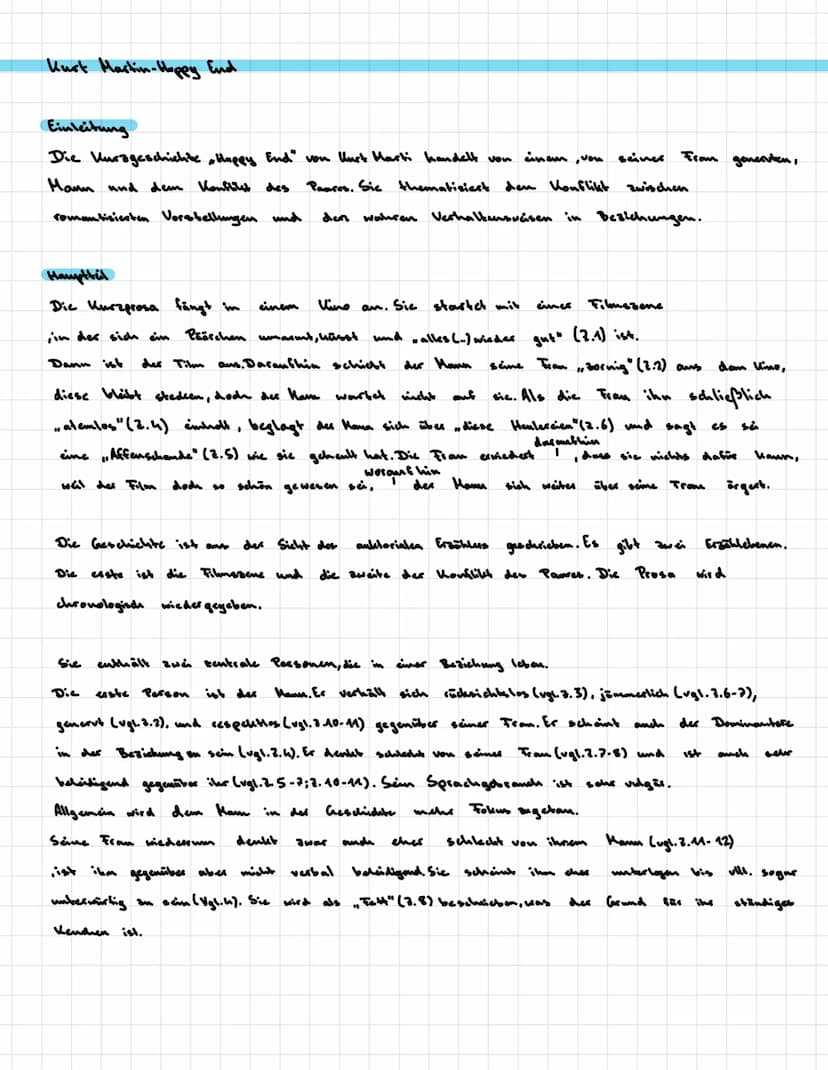 Kurt Martin-Happy End
Einleitung
Die Kurzgeschichte „Happy End" von Kurt Marti handelt von einem ,von seiner Frau genervten,
Mann und dem Konflikt des Paares. Sie thematisiert den Konflikt zwischen
romantisierten Vorstellungen und den wahren Verhaltensweisen in Beziehungen.
Hauptteil
Die Kurzprosa fängt in einem Kino an. Sie startet mit einer Filmszene
,in der sich ein Päärchen umarmt, küsst und „alles (...) wieder gut" (Z.1) ist.
Dann ist der Film aus. Daraufhin schickt der Mann seine Frau „zornig" (Z.2) aus dem Kino,
diese bleibt stecken, doch der Mann wartet nicht auf sie. Als die Frau ihn schließlich
„atemlos" (Z.4) einholt, beglagt der Mann sich über „diese Heulereien" (Z.6) und sagt es sei
eine „Affenschande" (Z.5) wie sie geheult hat. Die Frau erwiedert daraufhin, dass sie nichts dafür kann,
weil der Film doch so schön gewesen sei, woraufhin der Mann sich weiter über seine Frau ärgert.
Die Geschichte ist aus der Sicht des auktorialen Erzählers geschrieben. Es gibt zwei Erzählebenen.
Die erste ist die Filmszene und die zweite der Konflikt des Paares. Die Prosa wird
chronologisch wiedergegeben.
Sie enthält zwei zentrale Personen, die in einer Beziehung leben.
Die erste Person ist der Mann. Er verhält sich rücksichtslos (vgl. Z.3), jämmerlich (vgl. Z.6-7),
genervt (vgl. Z.2), und respektlos (vgl. Z.10-11) gegenüber seiner Frau. Er scheint auch der Dominantere
in der Beziehung zu sein (vgl. Z.4). Er denkt schlecht von seiner Frau (vgl. Z.7-8) und ist auch sehr
beleidigend gegenüber ihr (vgl. Z.5-7; Z.10-11). Sein Sprachgebrauch ist sehr vulgär.
Allgemein wird dem Mann in der Geschichte mehr Fokus zugetan.
Seine Frau wiederrum denkt zwar auch eher schlecht von ihrem Mann (vgl. Z.11-12)
,ist ihm gegenüber aber nicht verbal beleidigend. Sie scheint ihm eher unterlegen bis vllt. sogar
unterwürfig zu sein (Vgl.4). Sie wird als „Fett" (Z.8) beschrieben, was der Grund für ihr ständiges
Keuchen ist.